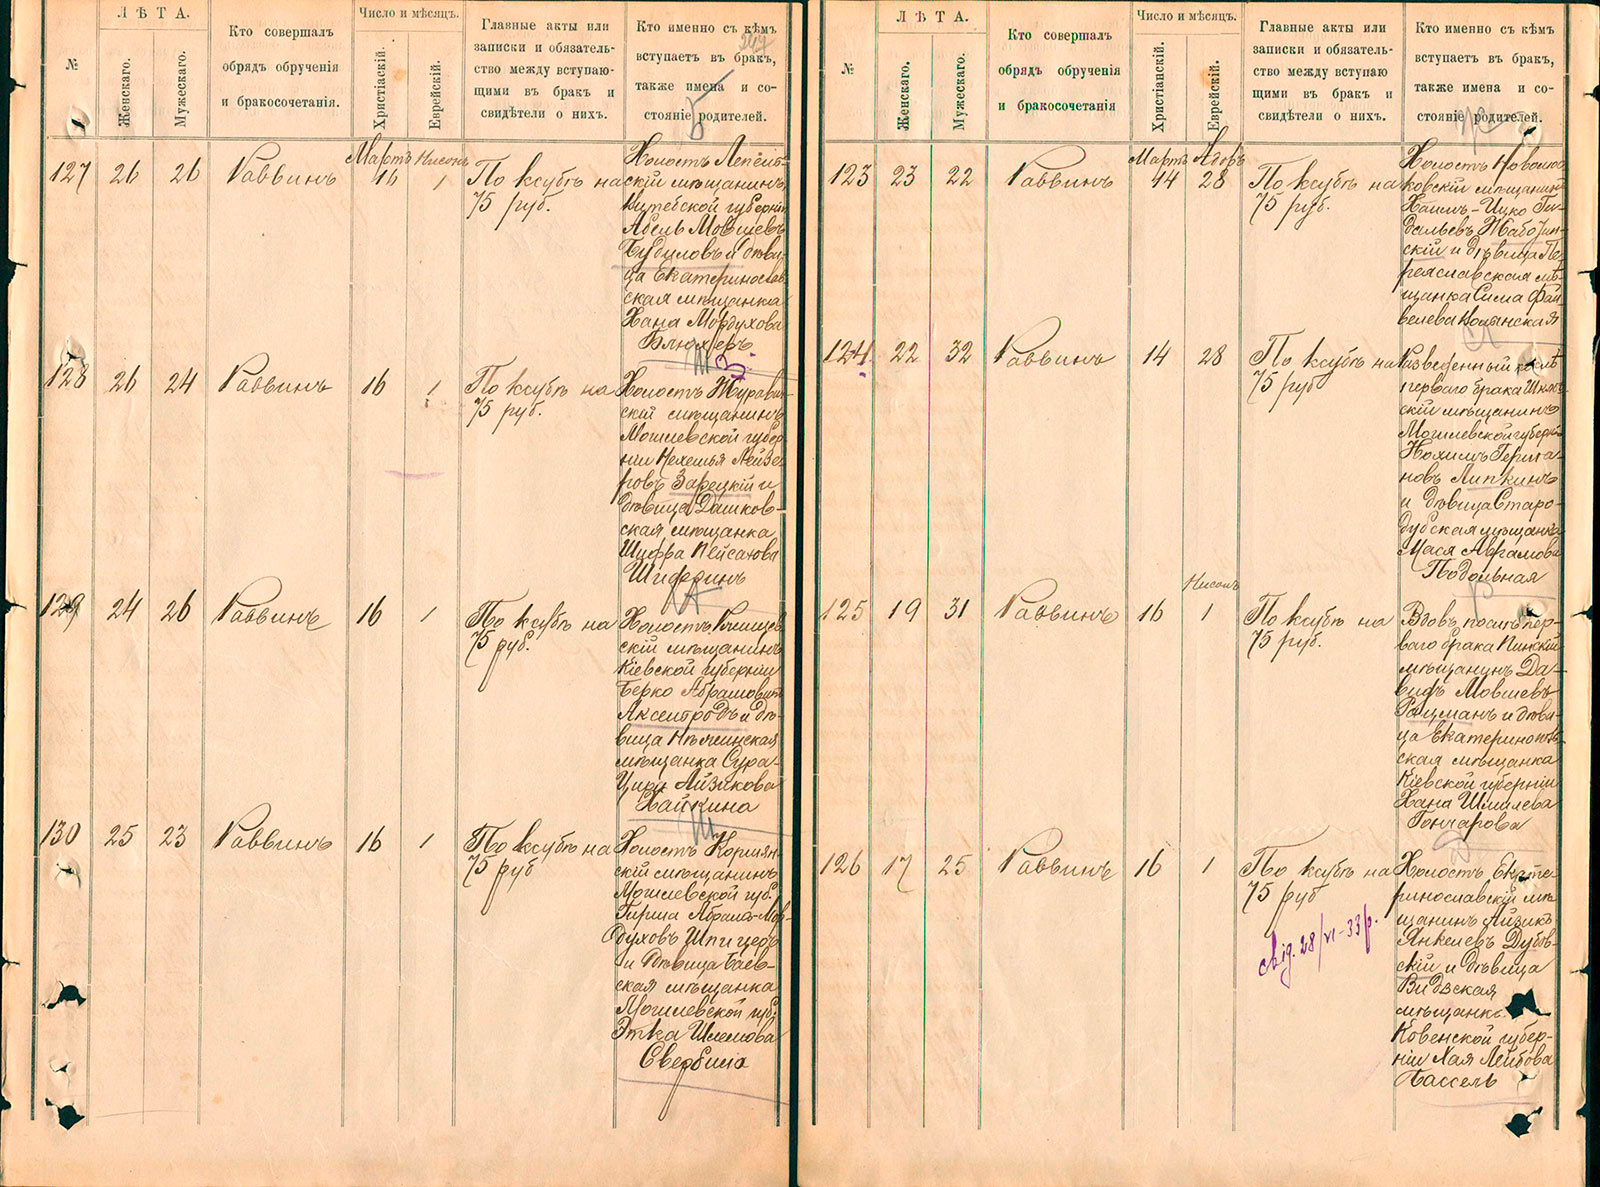 ЛѢТА.
Число и мѣсяцъ.
№
Женскаго.
Мужескаго.
Кто совершалъ
обрядъ обрученія
и бракосочетанія.
Христіаскій.
Еврейскій.
Главные акты или
записки и обязатель-
ство между вступаю-
щими въ бракъ и
свидѣтели о нихъ.
Кто именно съ кѣмъ
вступаетъ въ бракъ,
также имена и со-
стояніе родителей.
127
26
26
Раввинъ
Мартъ
16
Нисонъ
1
По ксубѣ на
75 руб.
Холостъ Лепель-
скій мѣщанинъ
Витебской губерніи
Абель Мовшевъ
Будиловъ и дѣви-
ца Екатеринослав-
ская мѣщанка
Хана Мордухова
Блюхеръ
128
26
24
Раввинъ
16
1
По ксубѣ на
75 руб.
Холостъ Журавич-
скій мѣщанинъ
Могилевской губер-
ніи Нехемья Лейзе-
ровъ Зарецкій и
дѣвица Дашков-
ская мѣщанка
Шифра Пейсахова
Шифринъ
129
24
26
Раввинъ
16
1
По ксубѣ на
75 руб.
Холостъ
скій мѣщанинъ
Кіевской губерніи
Берко Абрамовичъ
Аксельродъ и дѣ-
вица Нѣжинская
мѣщанка Сура-
Ципа Айзикова
Хайкина
130
25
23
Раввинъ
16
1
По ксубѣ на
75 руб
Холостъ Кормян-
скій мѣщанинъ
Могилевской губ.
Гирша Абрамъ-Мор-
духовъ Шпицеръ
и дѣвица Баев-
ская мѣщанка
Могилевской губ.
Этка Шлемова
Свербила
ЛѢТА.
Число и мѣсяцъ.
№
Женскаго.
Мужескаго.
Кто совершалъ
обрядъ обрученія
и бракосочетанія
Христіанскій.
Еврейскій.
Главные акты или
записки и обязатель-
ство между вступаю
щими въ бракъ и
свидѣтели о нихъ.
Кто именно съ кѣмъ
вступаетъ въ бракъ,
также имена и со-
стояніе родителей.
123
23
22
Раввинъ
Мартъ
14
Адоръ
28
По ксубѣ на
75 руб.
Холостъ
ковскій мѣщанинъ
Хаимъ-Ицко Ги-
дальевъ Жаботин-
скій и дѣвица Пе-
реяславская мѣ-
щанка Сима Фай-
велева
124
22
32
Раввинъ
14
28
По ксубѣ на
75 руб
Разведенный послѣ
перваго брака Шклов-
скій мѣщанинъ
Могилевской губерніи
Нохимъ Герша-
новъ Липкинъ
и дѣвица Старо-
дубская мѣщанка
Мася Абрамова
Подольная
125
19
31
Раввинъ
16
Нисонъ
1
По ксубѣ на
75 руб.
Вдовъ послѣ пер-
ваго брака Пинскій
мѣщанинъ Да-
видъ Мовшевъ
Рацманъ и дѣви-
ца Екатеринополь-
ская мѣщанка
Кіевской губерніи
Хана Шмилева
Гончарова
126
17
25
Раввинъ
16
1
По ксубѣ на
75 руб
свід. 28/VI-33 р.
Холостъ Екате-
ринославскій мѣ-
щанинъ Айзикъ
Янкелевъ Дубов-
скій и дѣвица
Видзская
мѣщанка
Ковенской губер-
ніи Хая Лейбова
Бассель